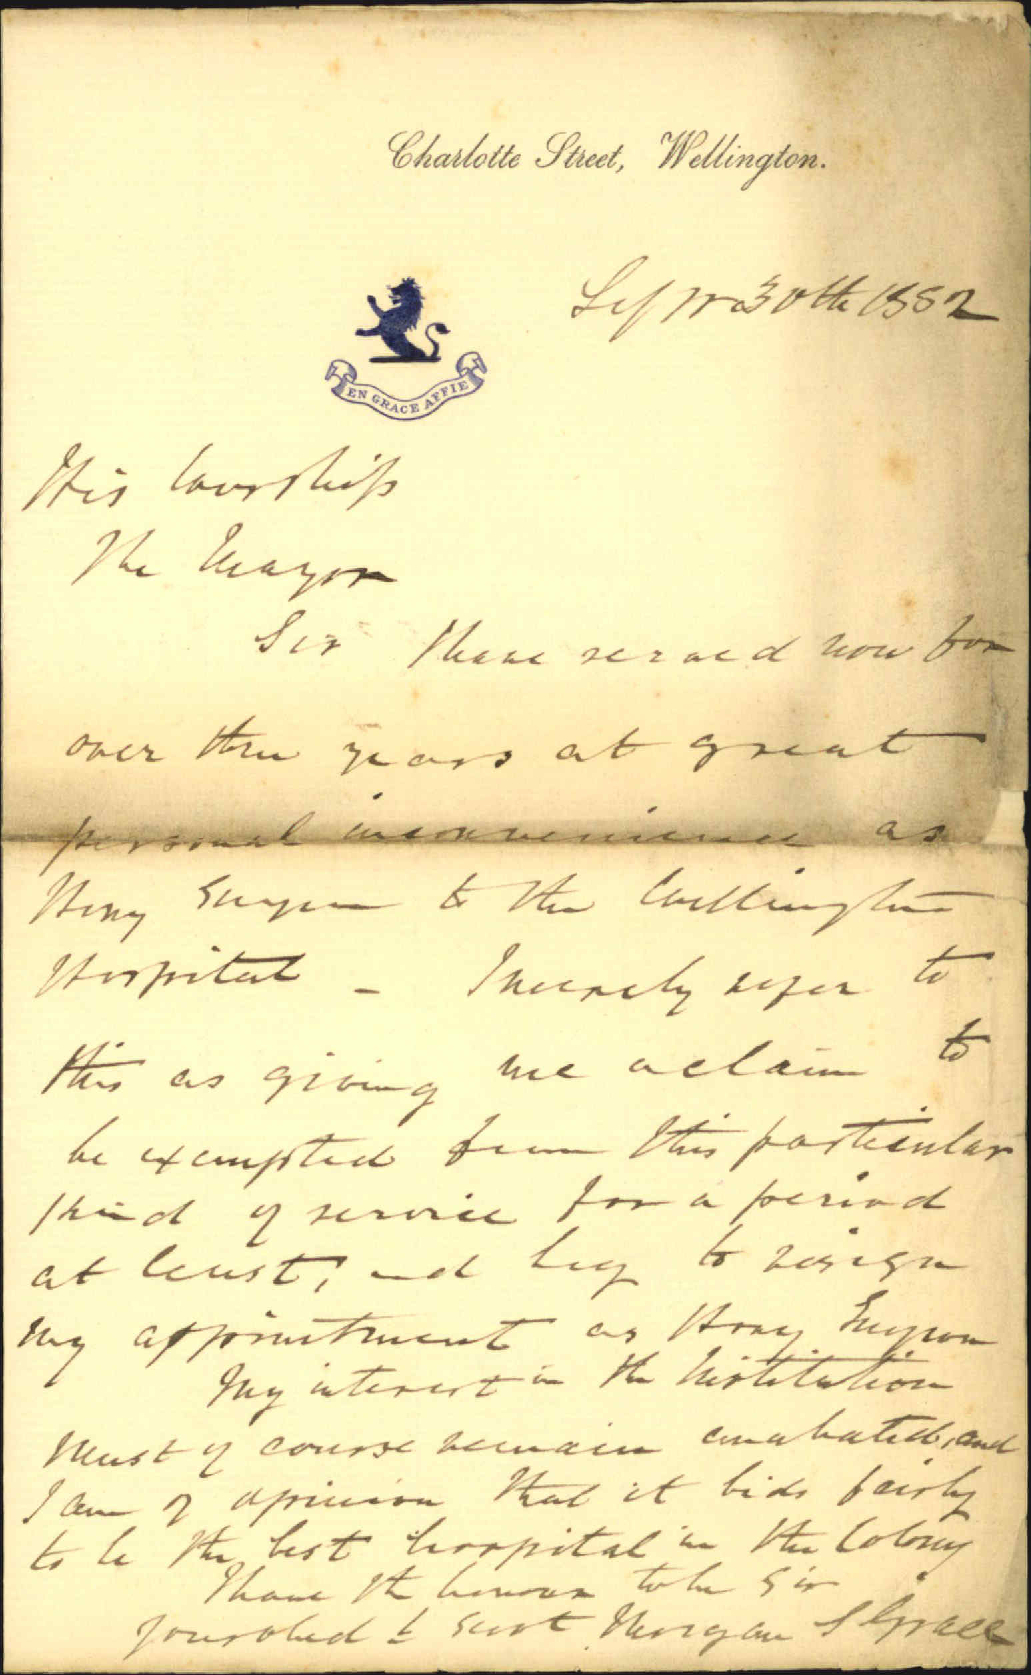 Charlotte Street, Wellington.
Septr 30th 1882
EN GRACE AFFIE
His Worship
The Mayor
Sir I have served now for
over three years at great
personal inconvenience as
Hony Surgeon to the Wellington
Hospital - I merely refer to
this as giving me a claim to
be exempted from this particular
kind of service for a period
at least, and beg to resign
my appointment as Hony Surgeon
My interest in the Institution
must of course remain unabated, and
I am of opinion that it bids fairly
to be the best hospital in the Colony
I have the honour to be Sir
your obed t servt Morgan S Grace